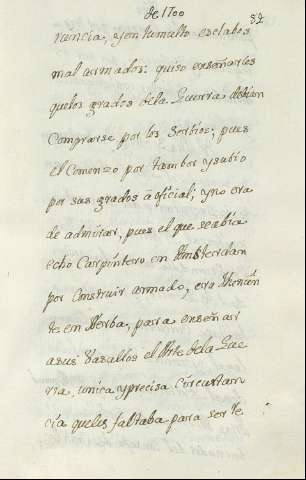 de 1700
82
rancia, y en tumulto esclabos
mal armados: quiso enseñarles
que los grados de la Guerra debian
Comprarse por los Serbios; pues
el Comenzo por tambor y subio
por sus grados â oficial; y no era
de admirar, pues el que se abia
echo Carpintero en Amsterdan
por Construir armada, era
te en Nerba, para enseñar
asus Vasallos el Arte de la Gue
rra, unica y precisa circustan
cia que les faltaba para ser te